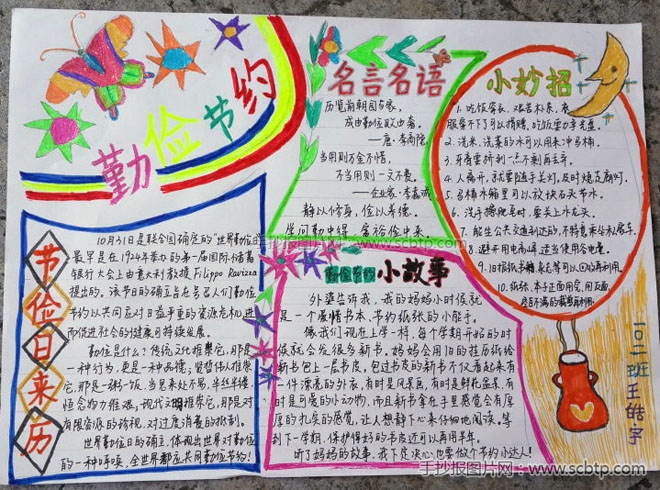 勤俭节约
节俭日来历
10月31日是联合国确定的"世界勤俭日"
最早是在1924年举办的第一届国际储蓄
银行大会上由意大利教授Filippo Ravizza
提出的。该节日的确立旨在号召人们勤俭
节约以共同应对日益严重的资源危机进
而促进社会的健康可持续发展。
勤俭是什么?传统文化推崇它,那是
一种行为,更是一种品德;
它,那是一粥一饭,当思来处不易,半丝半缕,
恒念物力维艰;现代文明推崇它,那是对
有限资源的珍视,对过度消费的抵制。
世界勤俭日的确立,体现出世界对勤俭
的一种呼唤,全世界都应共同勤俭节约!
名言名语
历览前朝国与家,
成由勤俭败由奢。
——唐·李商隐
当用则万金不惜,
不当用则一文不费。
——企业家·李嘉诚
静以修身,俭以养德。
学问勤中得,富裕俭中来。
勤俭节约小故事
外婆告诉我,我的妈妈小时候就
是一个爱惜书本、节约纸张的小能手。
像我们现在上学一样,每个学期开始的时
候就会发很多新书。妈妈会用旧的挂历纸给
新书包上一层书皮,包过书皮的新书不仅看起来有
一件漂亮的外衣,有时是风景画,有时是鲜花盆景,有
时是可爱的小动物,而且新书拿在手里感觉会有厚
厚的扎实的感觉,让人想静下心来仔细地阅读。等
到下一学期,保护得好的书皮还可以再用半年。
听了妈妈的故事,我下定决心也要做个节约小达人!
小妙招
1. 吃饭穿衣,艰苦朴素,衣
服穿不下了可以捐赠,吃饭要力求光盘。
2. 洗米、洗菜的水可以用来冲马桶。
3. 牙膏要挤到一点不剩再丢弃。
4. 人离开,就要随手关灯,及时熄灭厨灯。
5. 马桶水箱里可以放块石头节水。
6. 洗手擦肥皂时,要关上水龙头。
7. 能坐公共交通到达的,不特意乘坐私家车。
8. 避开用电高峰,适当使用各电量。
9. 旧报纸、书籍、夹克等可以回收再利用。
10. 纸张、本子正面用完,用反面,
一〇二班王皓宇
手抄报图片网:www.scbtp.com
www.scbtp.com